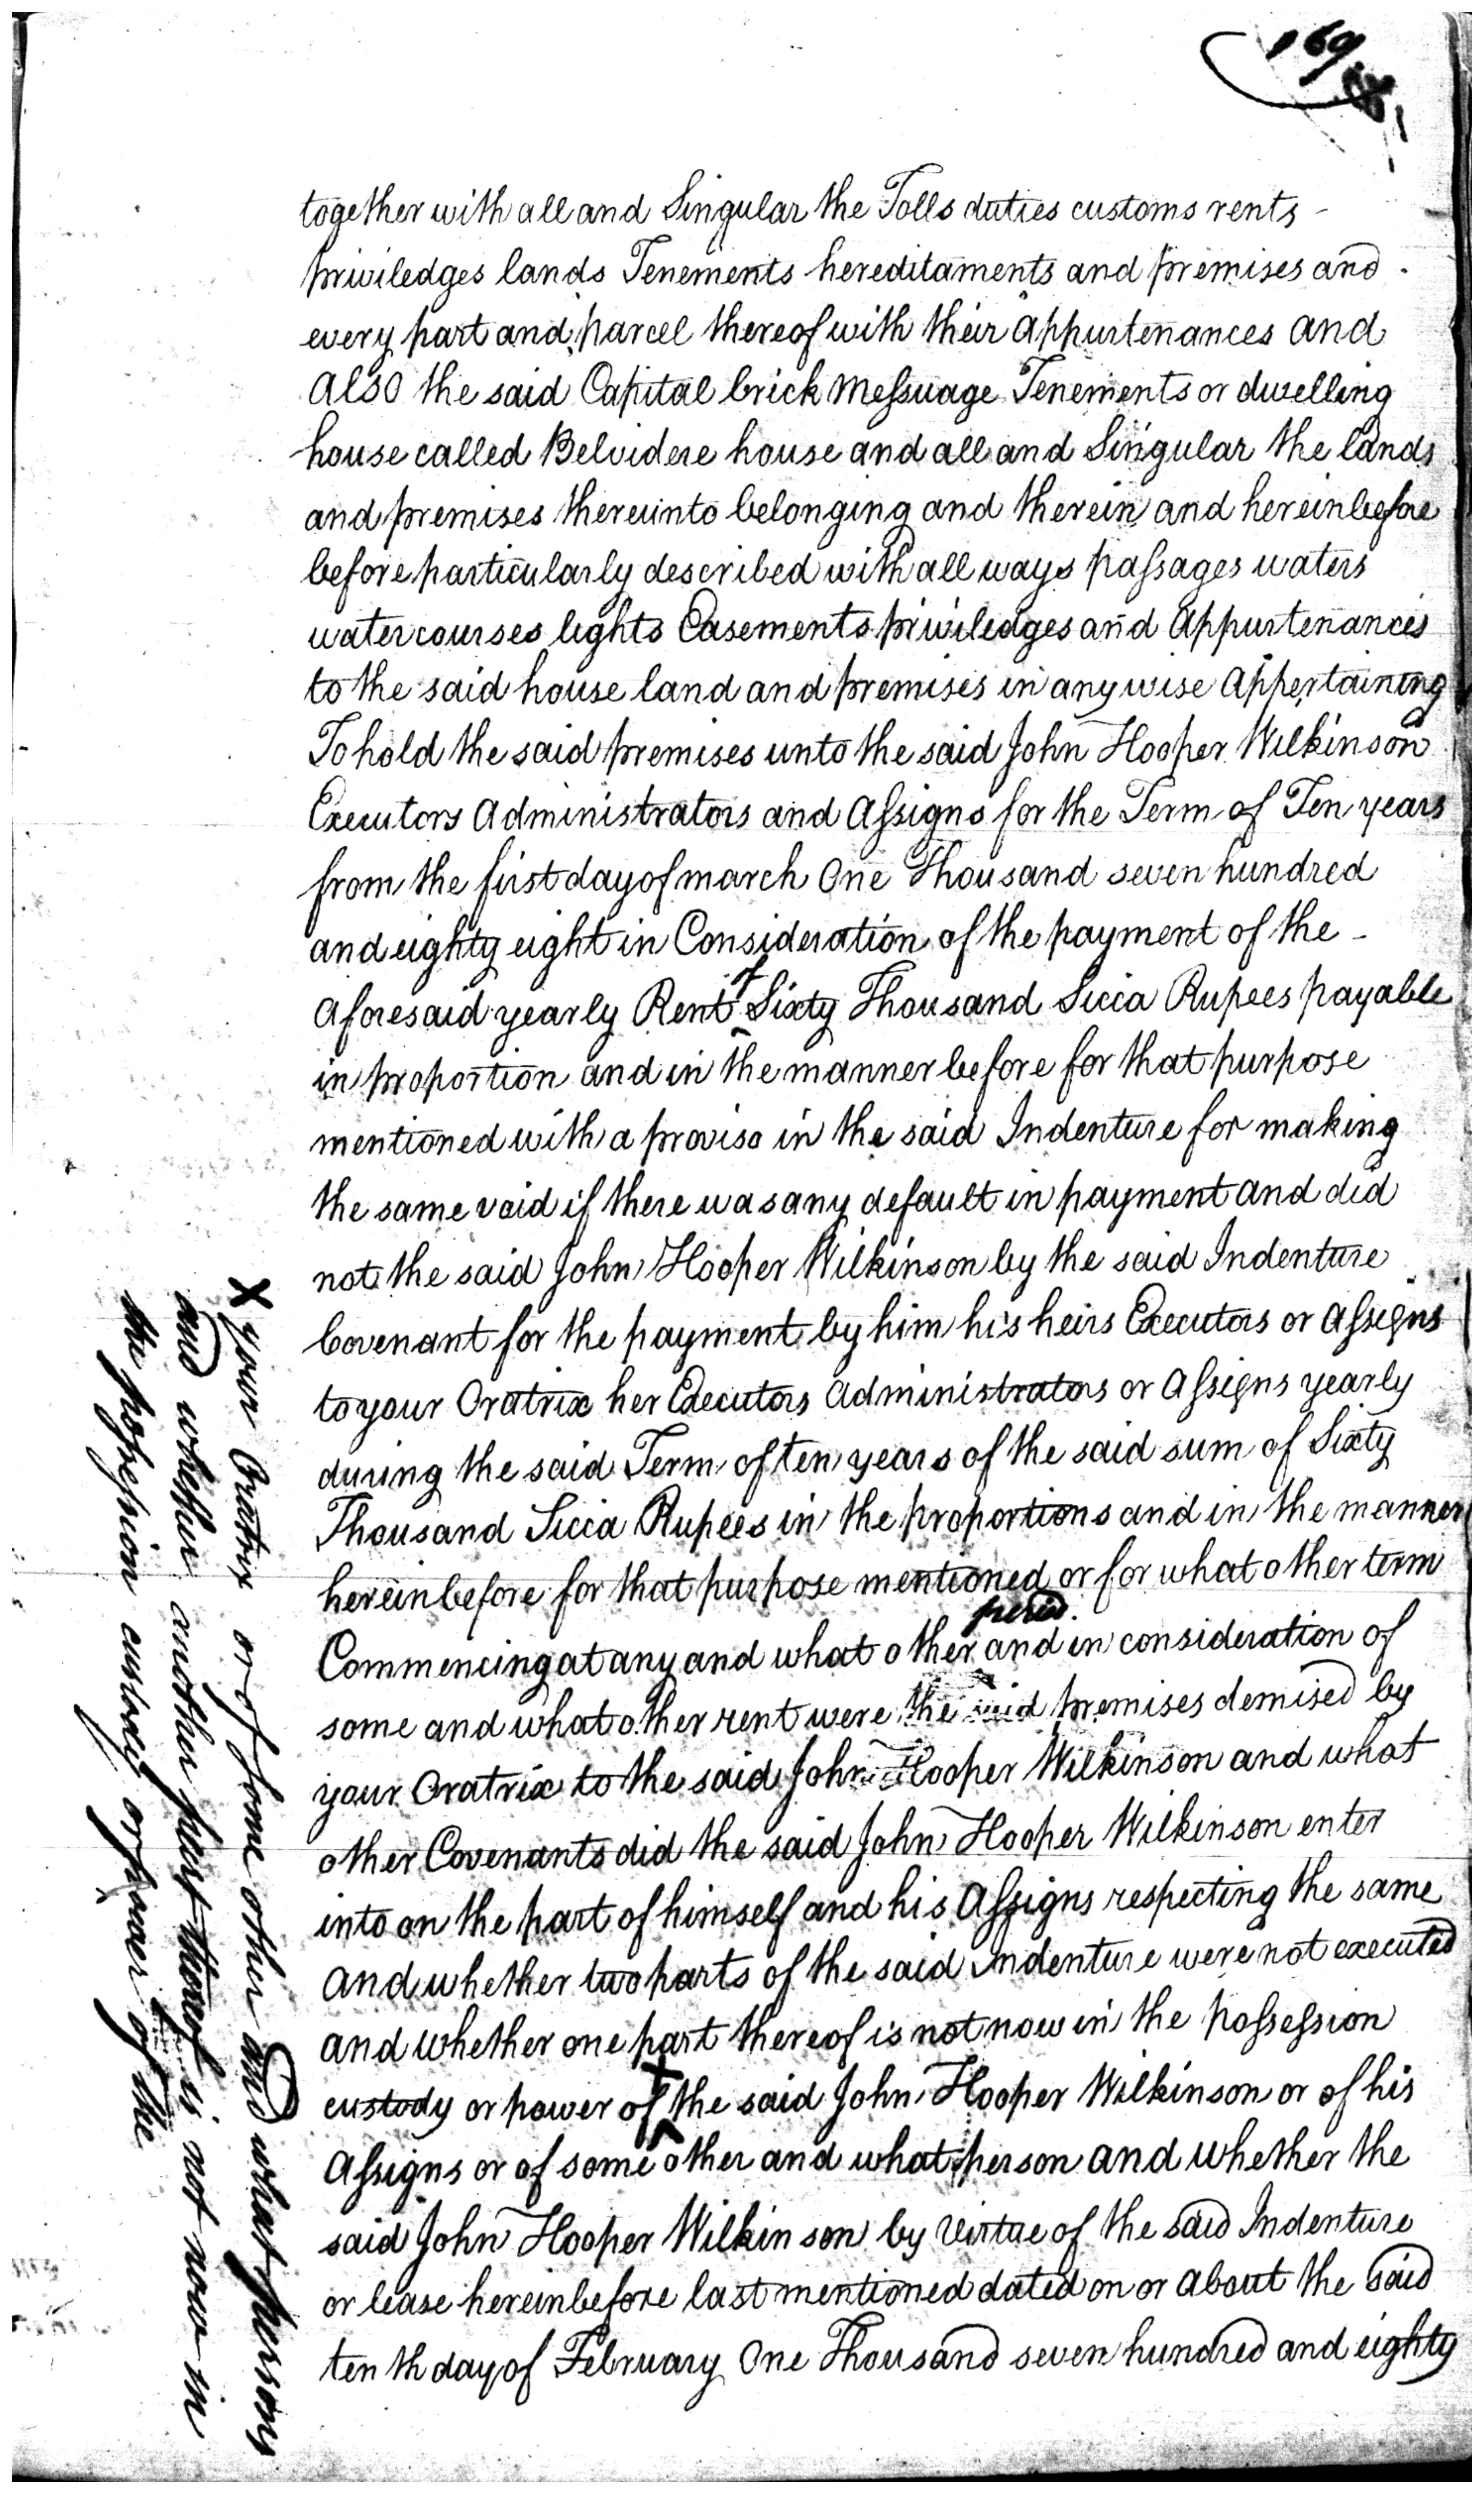 169
together with all and Singular the Tolls duties customs rents -
priviledges lands Tenements hereditaments and premises and
every part and parcel thereof with their appurtenances and
also the said Capital brick Messuage Tenements or dwelling
house called Belvidere house and all and Singular the lands
and premises thereunto belonging and therein and hereinbefore
before particularly described with all ways passages waters
watercourses lights Easements priviledges and Appurtenances
to the said house land and premises in any wise Appertaining
To hold the said premises unto the said John Hooper Wilkinson
Executors Administrators and Assigns for the Term of Ten years
from the first day of march One Thousand seven hundred
and eighty eight in Consideration of the payment of the -
aforesaid yearly Rent of Sixty Thousand Sicca Rupees payable
in proportion and in the manner before for that purpose
mentioned with a proviso in the said Indenture for making
the same void if there was any default in payment and did
not the said John Hooper Wilkinson by the said Indenture
Covenant for the payment by him his heirs Executors or Assigns
to your Oratrix her Executors Administrators or Assigns yearly
during the said Term of ten years of the said sum of Sixty
Thousand Sicca Rupees in the proportions and in the manner
hereinbefore for that purpose mentioned or for what other term
Commencing at any and what other period and in consideration of
some and what other rent were the said premises demised by
your Oratrix to the said John Hooper Wilkinson and what
other Covenants did the said John Hooper Wilkinson enter
into on the part of himself and his Assigns respecting the same
and whether two parts of the said Indenture were not executed
and whether one part thereof is not now in the possession
custody or power of x the said John Hooper Wilkinson or of his
Assigns or of some other and what person and whether the
said John Hooper Wilkinson by Virtue of the said Indenture
or lease hereinbefore last mentioned dated on or about the said
tenth day of February One Thousand seven hundred and eighty
x your Oratrix or of some other and what person
and whether another part thereof is not now in
the possession custody or power of the